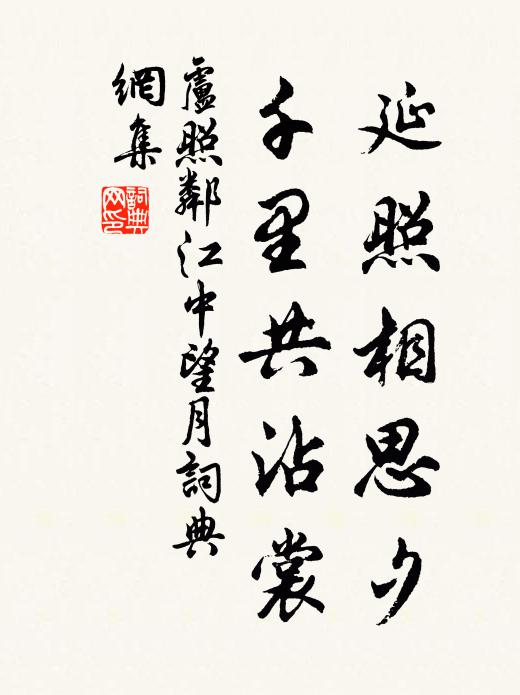 延照相思夕
千里共沾裳
盧照鄰江中望月詞典
網集
詞典
网印